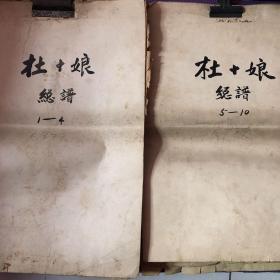 杜十娘
總譜
1—4
杜十娘
總譜
5—10